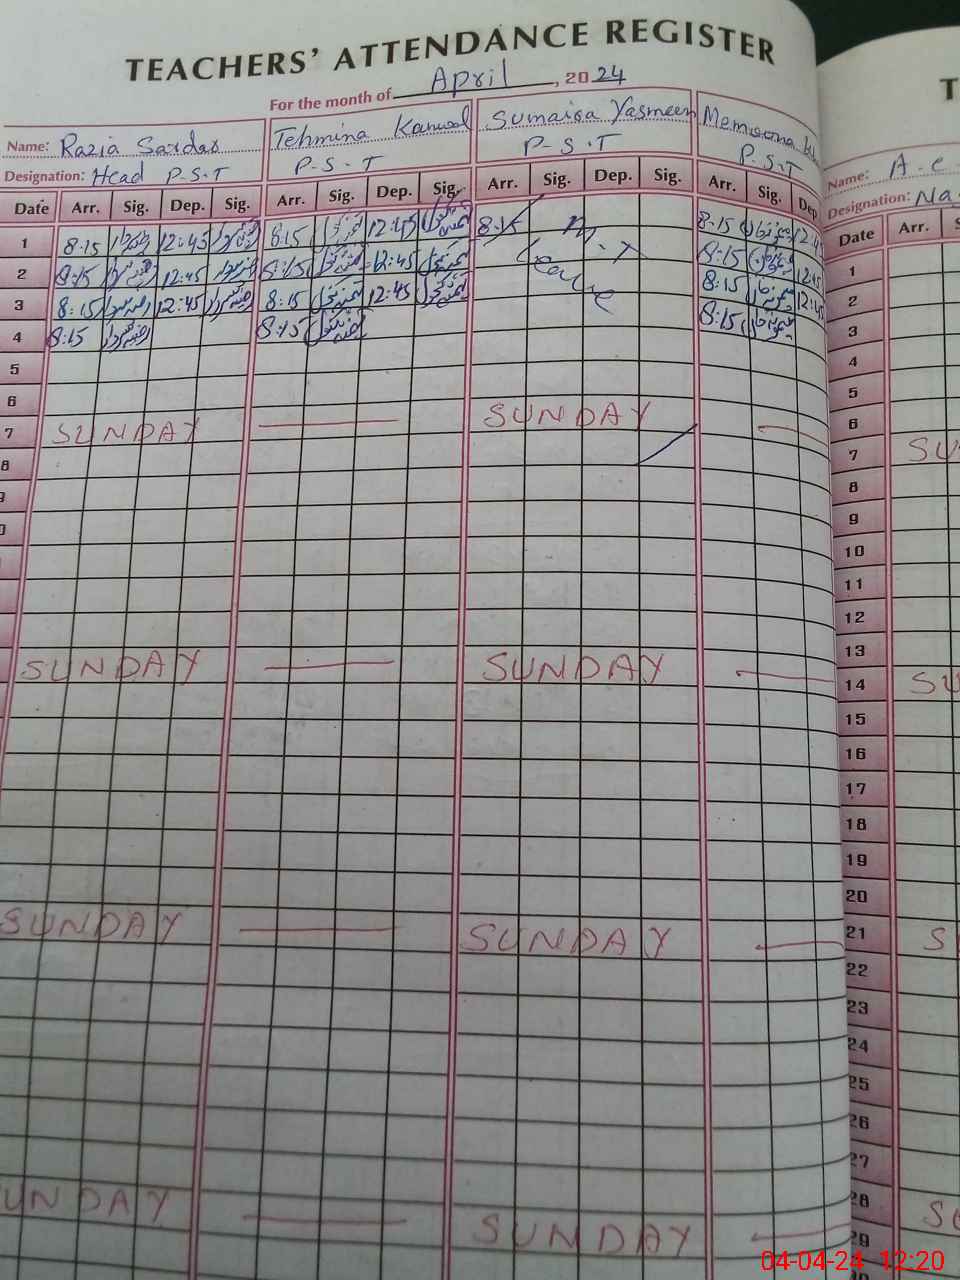 TEACHERS' ATTENDANCE REGISTER
For the month of April, 2024
Name: Razia Sardar Tehmina Kanwal Sumaira Yasmeen Memoona
Designation: Head P-S-T P-S-T P-S-T P.S.T
Date Arr. Sig. Dep. Sig. Arr. Sig. Dep. Sig. Arr. Sig. Dep. Sig. Arr. Sig. Dep
1 8:15 12:45 8:15 12:45 8:15 8:15 12:4
2 8:15 12:45 8:15 12:45 Leave 8:15 12:45
3 8:15 12:45 8:15 12:45 8:15 12:45
4 8:15 8:15 8:15
5
6
7 SUNDAY SUNDAY
8
SUNDAY SUNDAY
SUNDAY SUNDAY
UNDAY SUNDAY
T
Name: A.e
Designation: Na
Date Arr. S
1
2
3
4
5
6
7 SU
8
9
10
11
12
13
14 SU
15
16
17
18
19
20
21 S
22
23
24
25
26
27
28 SU
29
04-04-24 12:20